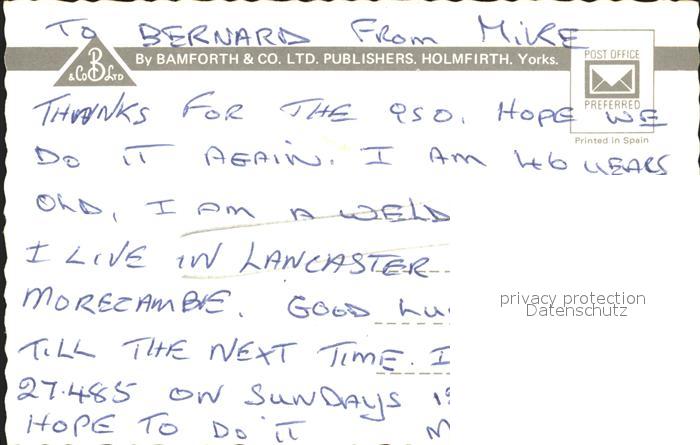 TO BERNARD FROM MIKE
& Co B LTD
By BAMFORTH & CO. LTD. PUBLISHERS. HOLMFIRTH. Yorks.
POST OFFICE
PREFERRED
Printed in Spain
THANKS FOR THE QSO. HOPE WE
DO IT AGAIN. I AM 46 YEARS
OLD, I AM A WELD
I LIVE IN LANCASTER
MORECAMBE. GOOD LU
TILL THE NEXT TIME. I
27.485 ON SUNDAYS
HOPE TO DO IT
privacy protection
Datenschutz